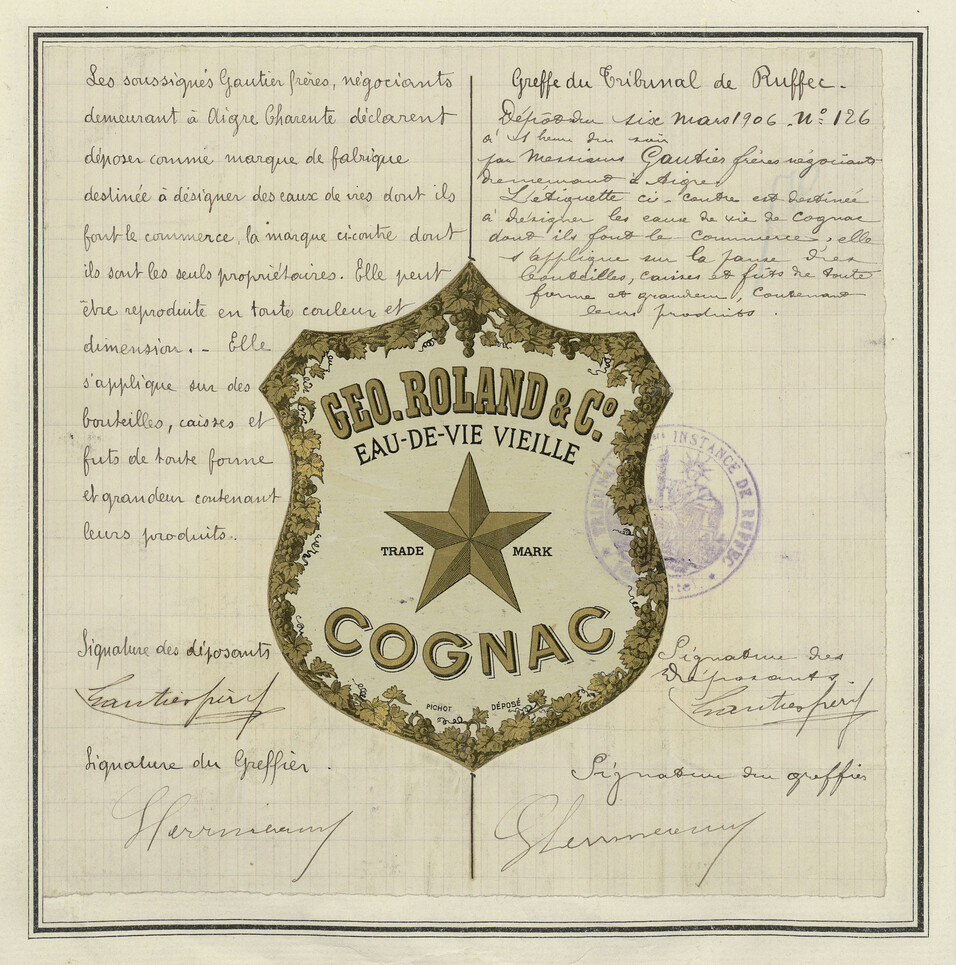 Les soussignés Gautier frères, négociants
demeurant à Aigre Charente déclarent
déposer comme marque de fabrique
destinée à désigner des eaux de vies dont ils
font le commerce, la marque ci-contre dont
ils sont les seuls propriétaires. Elle peut
être reproduite en toute couleur et
dimension. - Elle
s'applique sur des
bouteilles, caisses et
futs de toute forme
et grandeur contenant
leurs produits.
Signature des déposants
Gautier frères
Signature du Greffier.
Greffe du Tribunal de Ruffec.
Dépôt du six Mars 1906. No: 126
à heure du soir
par Messieurs Gautier frères négociants
demeurant à Aigre.
L'étiquette ci-contre est destinée
à désigner les eaux de vie de Cognac
dont ils font le commerce, elle
s'applique sur la panse des
bouteilles, caisses et futs de toute
forme et grandeur, contenant
leurs produits.
GEO. ROLAND & Co.
EAU-DE-VIE VIEILLE
TRADE MARK
COGNAC
PICHOT DÉPOSÉ
INSTANCE DE RUFFEC
Signature des
Déposants
Gautier frères
Signature du greffier